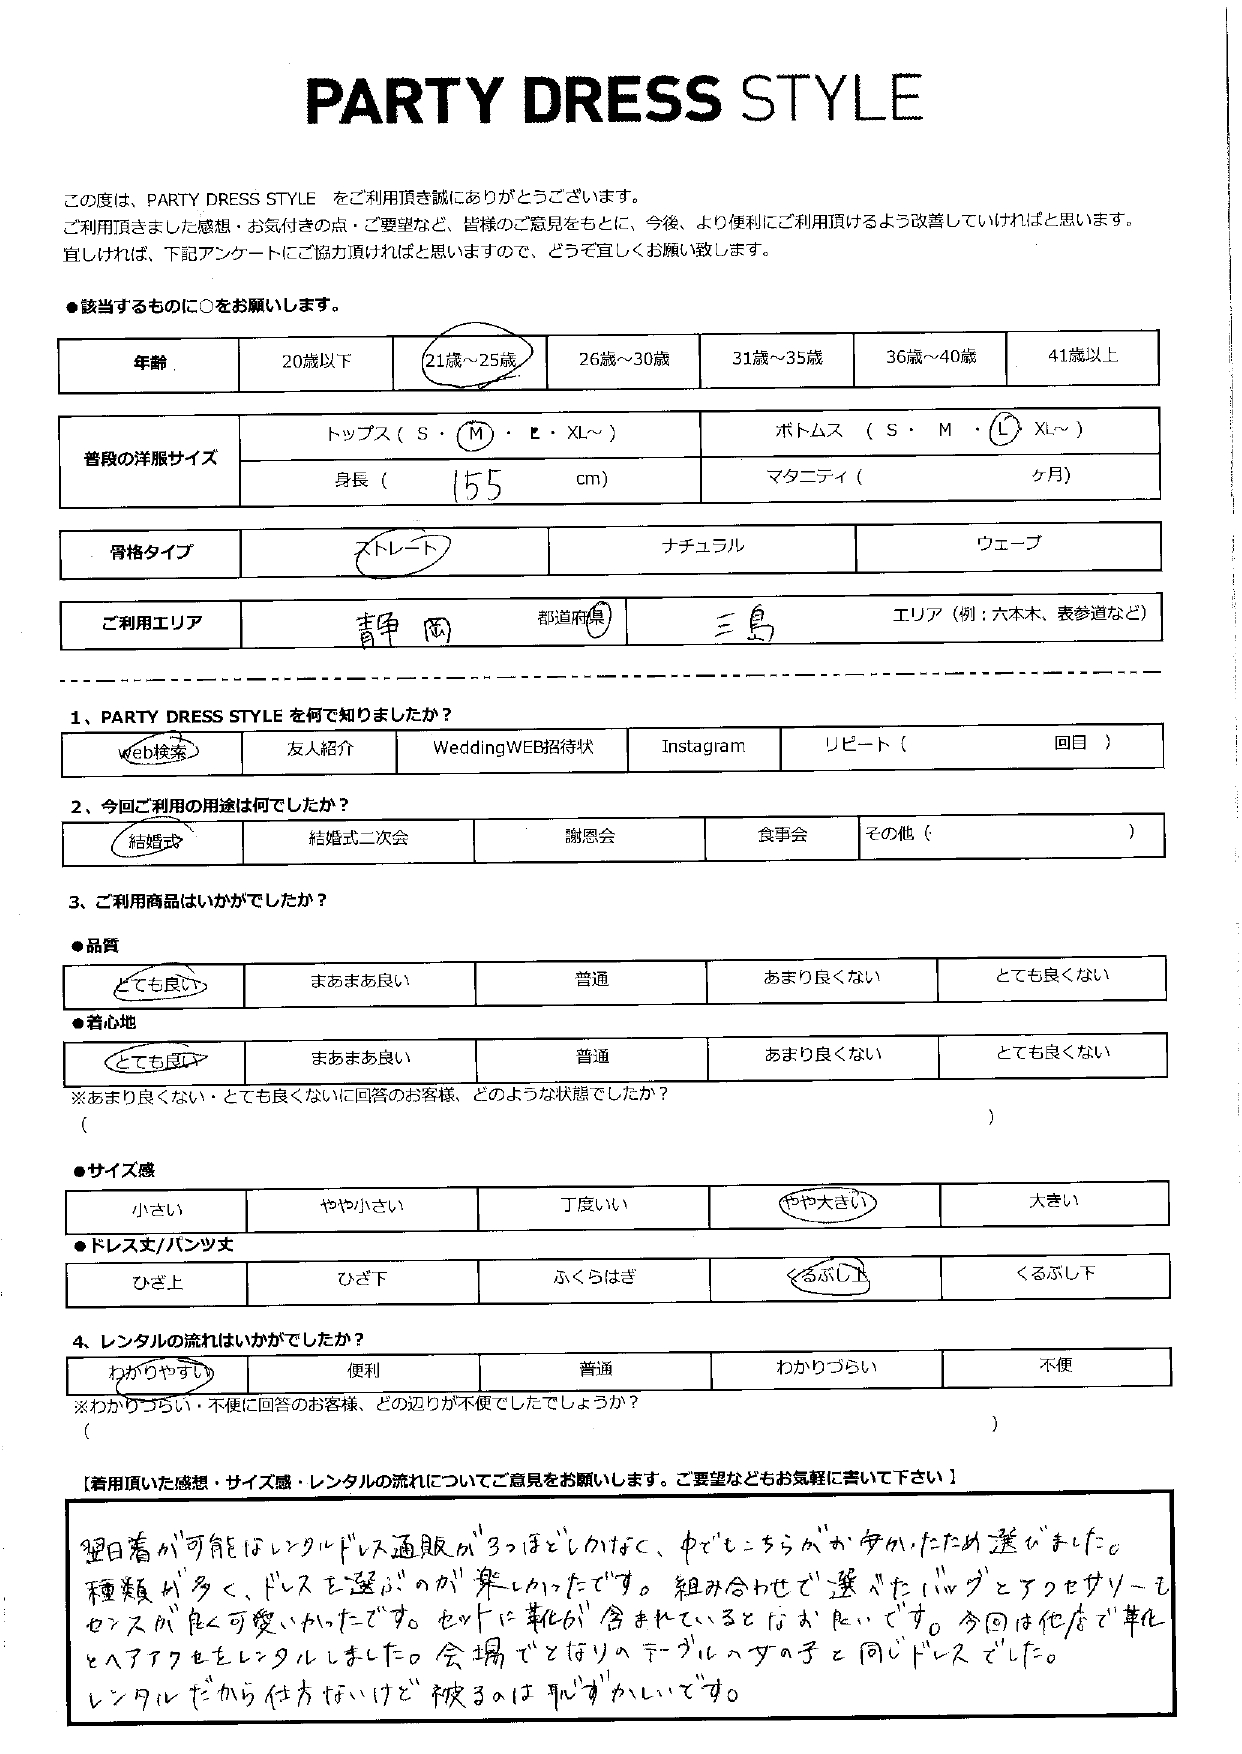 PARTY DRESS STYLE
この度は、PARTY DRESS STYLE をご利用頂き誠にありがとうございます。
ご利用頂きました感想・お気付きの点・ご要望など、皆様のご意見をもとに、今後、より便利にご利用頂けるよう改善していければと思います。
宜しければ、下記アンケートにご協力頂ければと思いますので、どうぞ宜しくお願い致します。
●該当するものに○をお願いします。
年齢 20歳以下 21歳～25歳 26歳～30歳 31歳～35歳 36歳～40歳 41歳以上
普段の洋服サイズ トップス ( S ・ M ・ L ・ XL～ ) ボトムス ( S ・ M ・ L ・ XL～ )
身長 ( 155 cm) マタニティ ( ヶ月)
骨格タイプ ストレート ナチュラル ウェーブ
ご利用エリア 静岡 都道府県 三島 エリア（例：六本木、表参道など）
1、PARTY DRESS STYLE を何で知りましたか？
Web検索 友人紹介 WeddingWEB招待状 Instagram リピート ( 回目 )
2、今回ご利用の用途は何でしたか？
結婚式 結婚式二次会 謝恩会 食事会 その他 ( )
3、ご利用商品はいかがでしたか？
●品質
とても良い まあまあ良い 普通 あまり良くない とても良くない
●着心地
とても良い まあまあ良い 普通 あまり良くない とても良くない
※あまり良くない・とても良くないに回答のお客様、どのような状態でしたか？
( )
●サイズ感
小さい やや小さい 丁度いい やや大きい 大きい
●ドレス丈/パンツ丈
ひざ上 ひざ下 ふくらはぎ くるぶし上 くるぶし下
4、レンタルの流れはいかがでしたか？
わかりやすい 便利 普通 わかりづらい 不便
※わかりづらい・不便に回答のお客様、どの辺りが不便でしたでしょうか？
( )
【着用頂いた感想・サイズ感・レンタルの流れについてご意見をお願いします。ご要望などもお気軽に書いて下さい】
翌日着が可能なレンタルドレス通販が3つほどしかなく、中でもこちらがお安かったため選びました。
種類が多く、ドレスを選ぶのが楽しかったです。組み合わせで選べたバッグとアクセサリーも
センスが良く可愛いかったです。セットに靴が含まれているとなお良いです。今回は他店で靴
とヘアアクセをレンタルしました。会場でとなりのテーブルの女の子と同じドレスでした。
レンタルだから仕方ないけど被るのは恥ずかしいです。